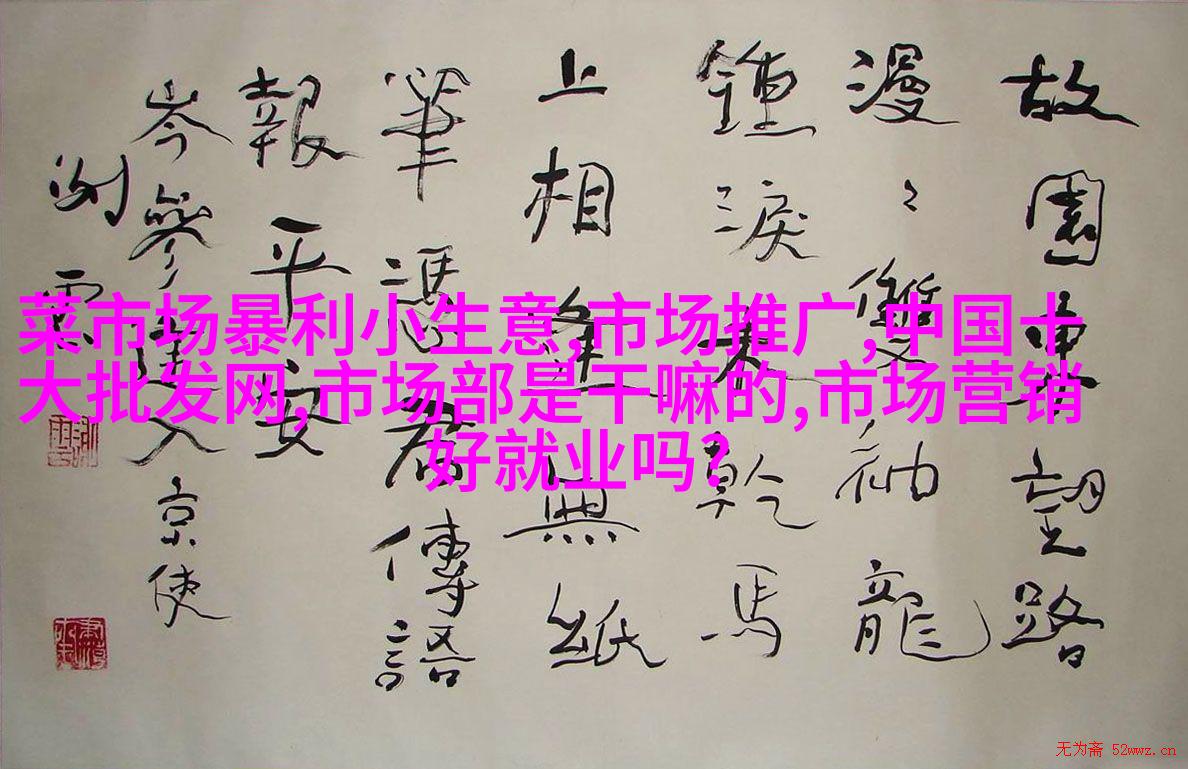 故園東望路
漫〻雙袖龍
鍾淚未乾馬
上相逢無紙
筆馮君傳語
報平安
岑參逢入京使
菜市场暴利小生意,市场推广,中国十
大批发网,市场部是干嘛的,市场营销
好就业吗?
无为斋 52wwz.cn